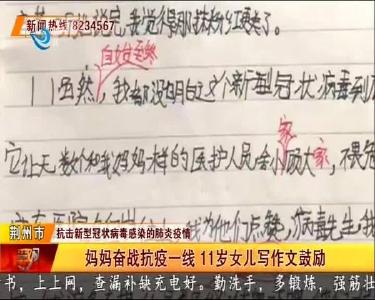 新闻热线78234567
说完,我觉得那抹粉红更
了。
自始至终
虽然,我都没明白这个新型冠状病毒到
家
它让无数个和我妈妈一样的医护人员舍小顾大家,不畏危
为他们点赞,病毒先生,我
荆州市
抗击新型冠状病毒感染的肺炎疫情
妈妈奋战抗疫一线 11岁女儿写作文鼓励
书,上上网,查漏补缺充电好。勤洗手,多锻炼,强筋壮